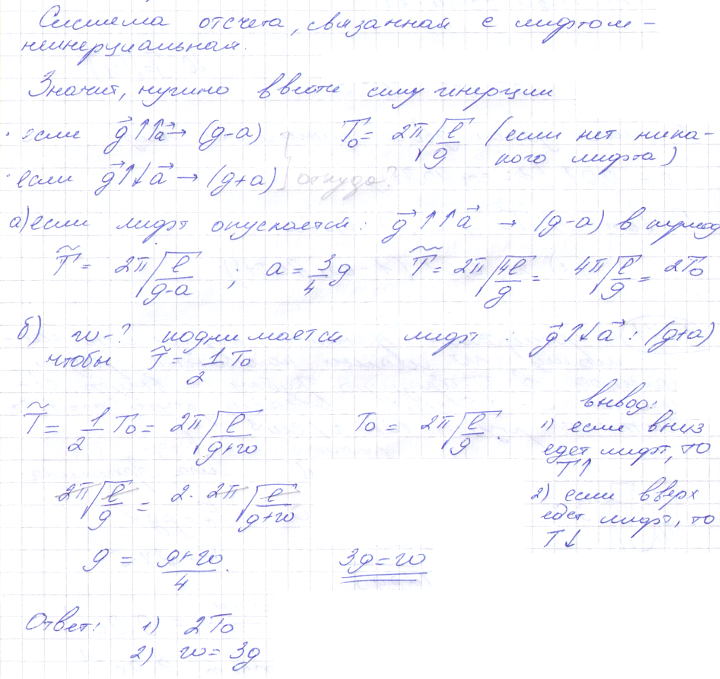 Система отсчета, связанная с лифтом –
неинерциальная.
Значит, нужно ввести силу инерции
· если g⃗↑↑a⃗ → (g-a) T₀ = 2π√(l/g) (если нет ника-
кого лифта)
· если g⃗↑↓a⃗ → (g+a) откуда?
а) если лифт опускается: g⃗↑↑a⃗ → (g-a) в период
T̃ = 2π√(l/(g-a)) ; a = 3/4 g T̃ = 2π√(4l/g) = 4π√(l/g) = 2T₀
б) w-? поднимается лифт: g⃗↑↓a⃗: (g+a)
чтобы T̃ = 1/2 T₀
T̃ = 1/2 T₀ = 2π√(l/(g+w)) T₀ = 2π√(l/g).
2π√(l/g) = 2·2π√(l/(g+w))
g = (g+w)/4. 3g = w
вывод:
1) если вниз
едет лифт, то
T↑
2) если вверх
едет лифт, то
T↓
Ответ: 1) 2T₀
2) w = 3g